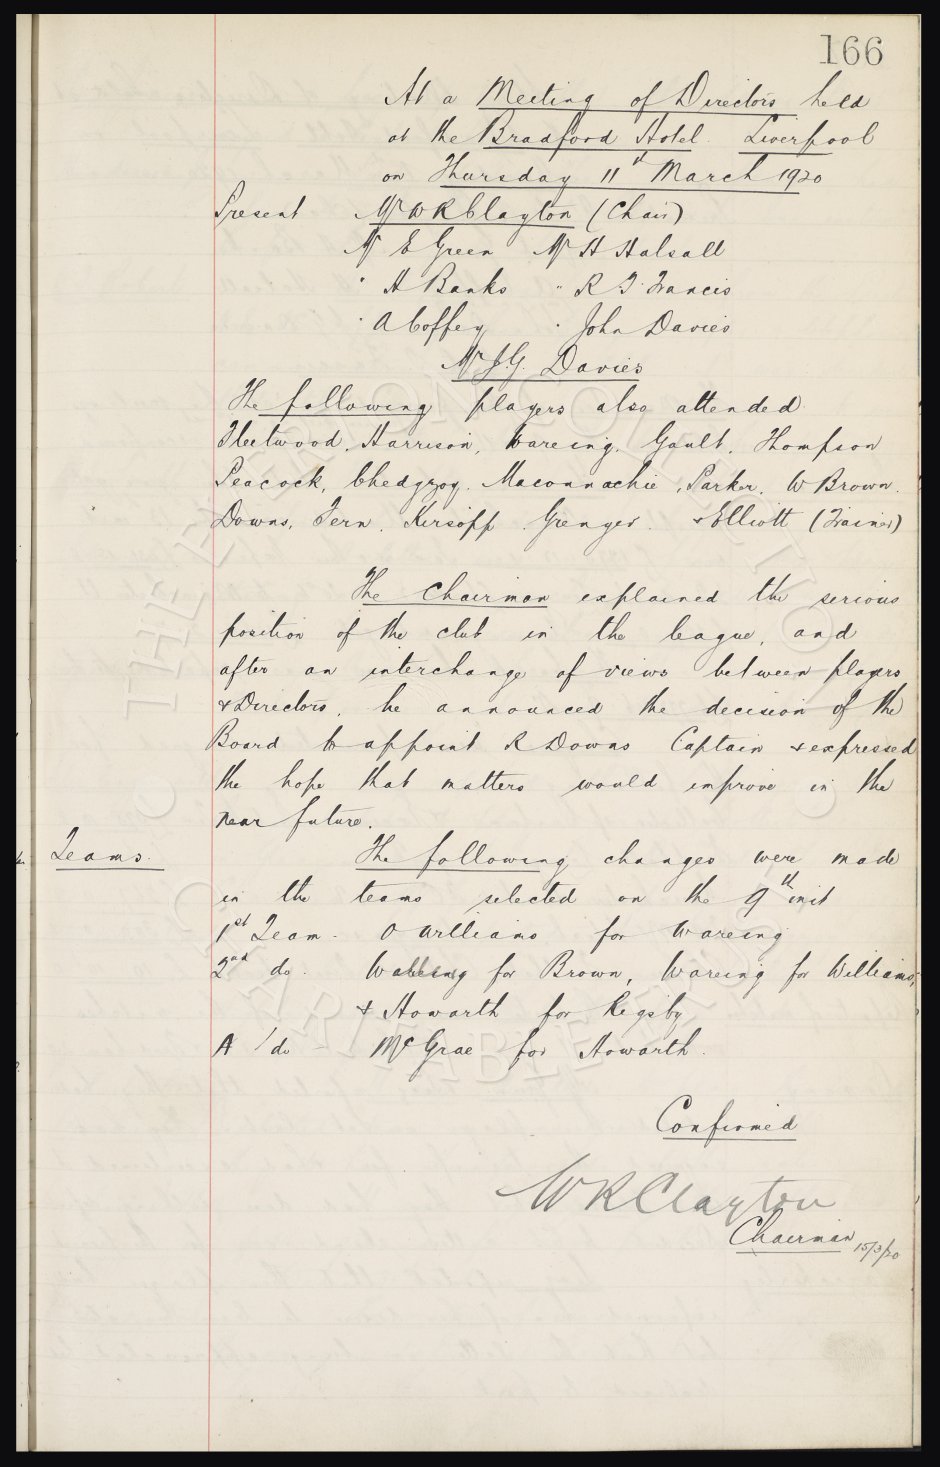 166
At a Meeting of Directors held
at the Bradford Hotel Liverpool
on Thursday 11th March 1920
Present Mr W R Clayton (Chair)
Mr E Green Mr H Halsall
" A Banks " R T Francis
" A Coffey " John Davies
Mr J.G. Davies
The following players also attended
Fleetwood, Harrison, Wareing, Gault, Thompson
Peacock, Chedgzoy, Maconnachie, Parker, W Brown.
Downs, Fern, Kirsopp Grenyer. & Elliott (Trainer)
The Chairman explained the serious
position of the club in the league, and
after an interchange of views between players
& Directors, he announced the decision of the
Board to appoint R Downs Captain & expressed
the hope that matters would improve in the
near future.
Teams. The following changes were made
in the teams selected on the 9th inst
1st Team - O Williams for Wareing
2nd do. for Brown, Wareing for Williams,
& Howarth for Rigsby
A / do - McGrae for Howarth.
Confirmed
W R Clayton
Chairman 15/3/20
THE EVERTON COLLECTION
CHARITABLE TRUST